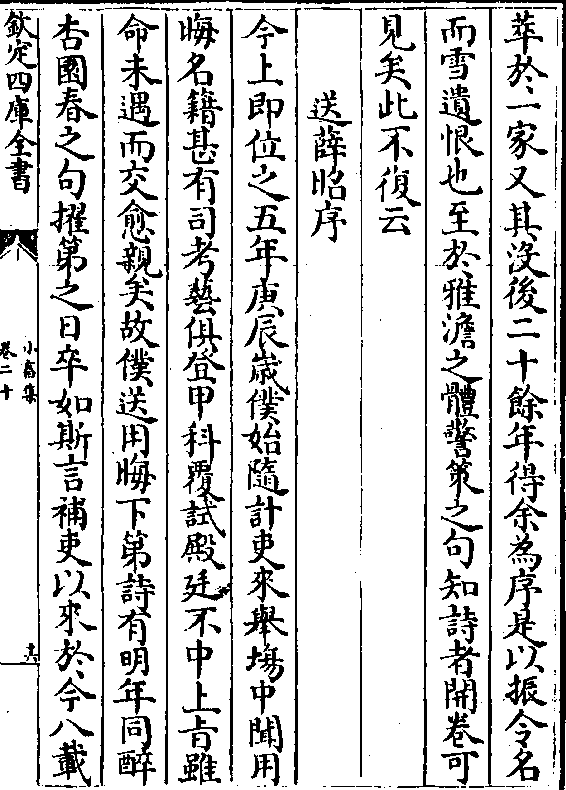 萃於一家又其沒後二十餘年得余為序是以振令名
而雪遺恨也至於雅澹之體警策之句知詩者開卷可
見矣此不復云
送薛昭序
今上即位之五年庚辰歲僕始隨計吏來舉塲中聞用
晦名籍甚有司考藝俱登甲科覆試殿廷不中上旨雖
命未遇而交愈親矣故僕送用晦下第詩有明年同醉
杏園春之句擢第之日卒如斯言補吏以來於今八載
欽定四庫全書
小畜集
卷二十
十六